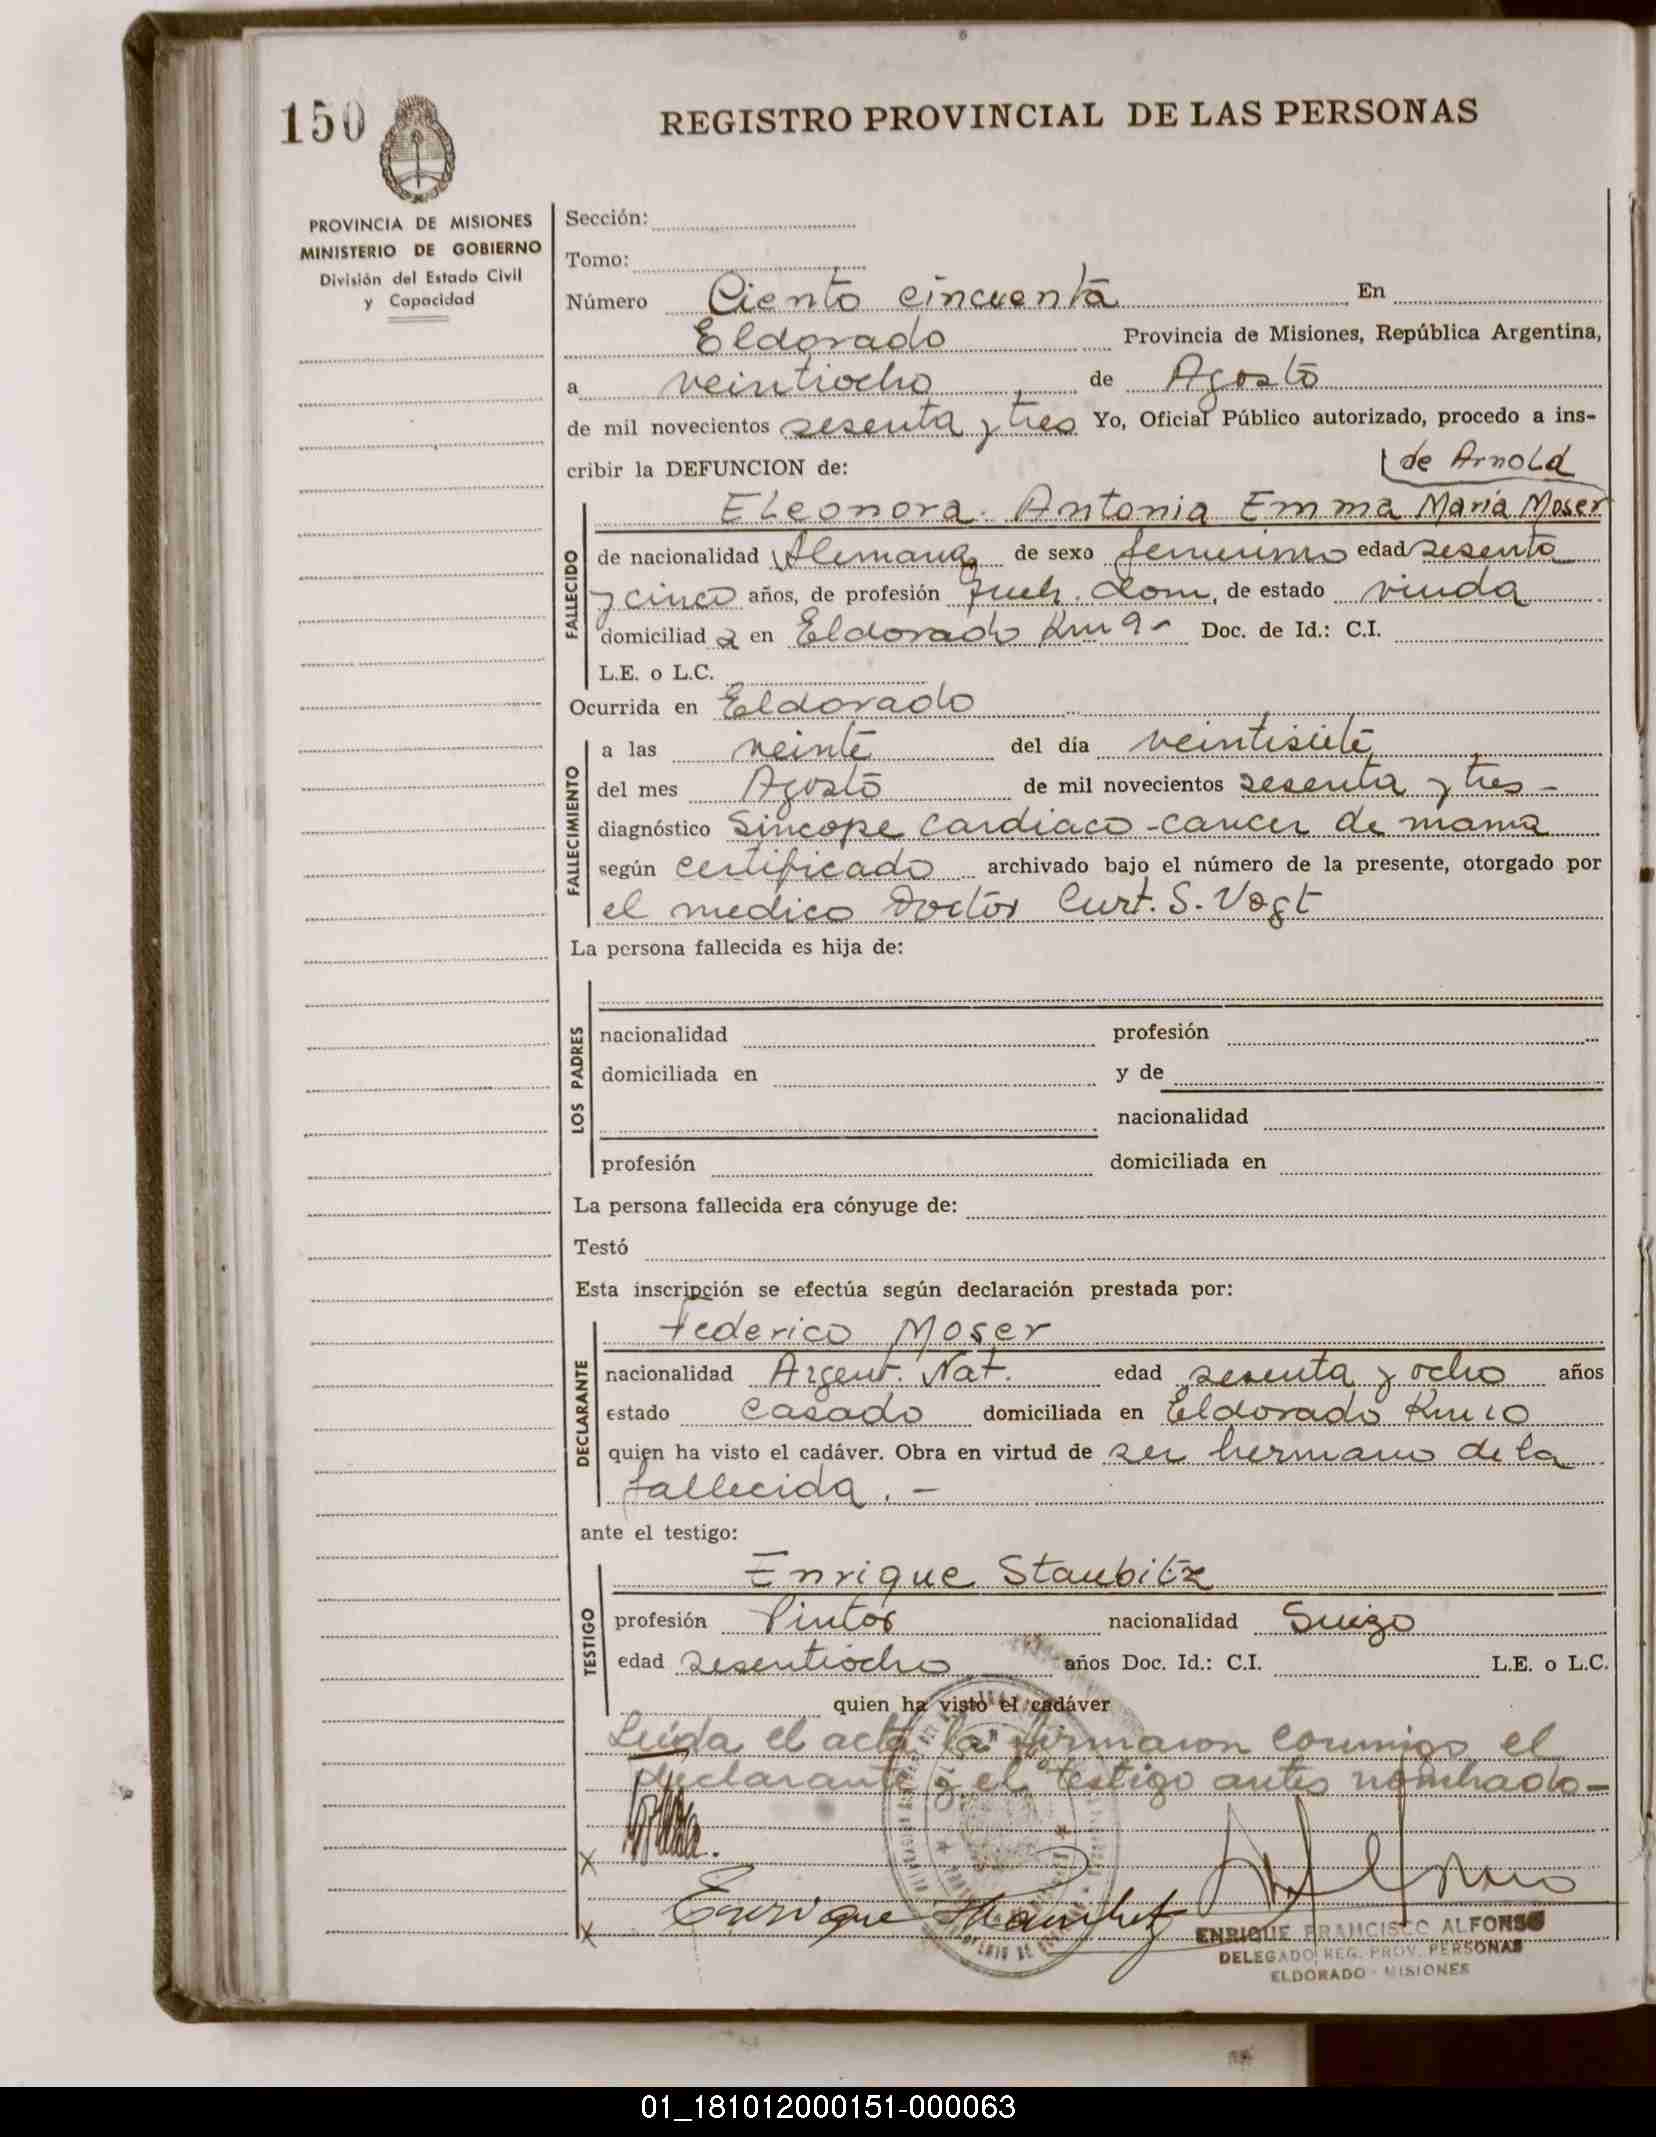 150
REGISTRO PROVINCIAL DE LAS PERSONAS
PROVINCIA DE MISIONES
MINISTERIO DE GOBIERNO
División del Estado Civil
y Capacidad
Sección:
Tomo:
Número Ciento cincuenta En
Eldorado Provincia de Misiones, República Argentina,
a veintiocho de Agosto
de mil novecientos sesenta y tres Yo, Oficial Público autorizado, procedo a ins-
cribir la DEFUNCION de:
de Arnold
Eleonora Antonia Emma Maria Moser
FALLECIDO
de nacionalidad Alemana de sexo femenino edad sesenta
y cinco años, de profesión dom, de estado viuda
domiciliad a en Eldorado Km 9- Doc. de Id.: C.I.
L.E. o L.C.
Ocurrida en Eldorado
FALLECIMIENTO
a las veinte del día veintisiete
del mes Agosto de mil novecientos sesenta y tres -
diagnóstico Sincope cardiaco - cancer de mama
según certificado archivado bajo el número de la presente, otorgado por
el medico Doctor Curt. S. Vogt
La persona fallecida es hija de:
LOS PADRES
nacionalidad profesión
domiciliada en y de
nacionalidad
profesión domiciliada en
La persona fallecida era cónyuge de:
Testó
Esta inscripción se efectúa según declaración prestada por:
DECLARANTE
Federico Moser
nacionalidad Argent. Nat. edad sesenta y ocho años
estado casado domiciliada en Eldorado Km 10
quien ha visto el cadáver. Obra en virtud de ser hermano de la
fallecida. -
ante el testigo:
TESTIGO
Enrique Staubitz
profesión Pintor nacionalidad Suizo
edad sesentiocho años Doc. Id.: C.I. L.E. o L.C.
quien ha visto el cadáver
Leida el acta la firmaron conmigo el
declarante y el testigo antes nombrado -
X
X Enrique Staubitz
ENRIQUE FRANCISCO ALFONSO
DELEGADO REG. PROV. PERSONAS
ELDORADO - MISIONES
01_181012000151-000063